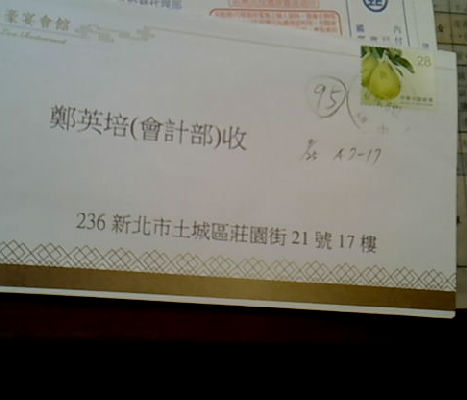 豪宴會館
28
95
鄭英培(會計部)收
A7-17
236 新北市土城區莊園街 21 號 17 樓